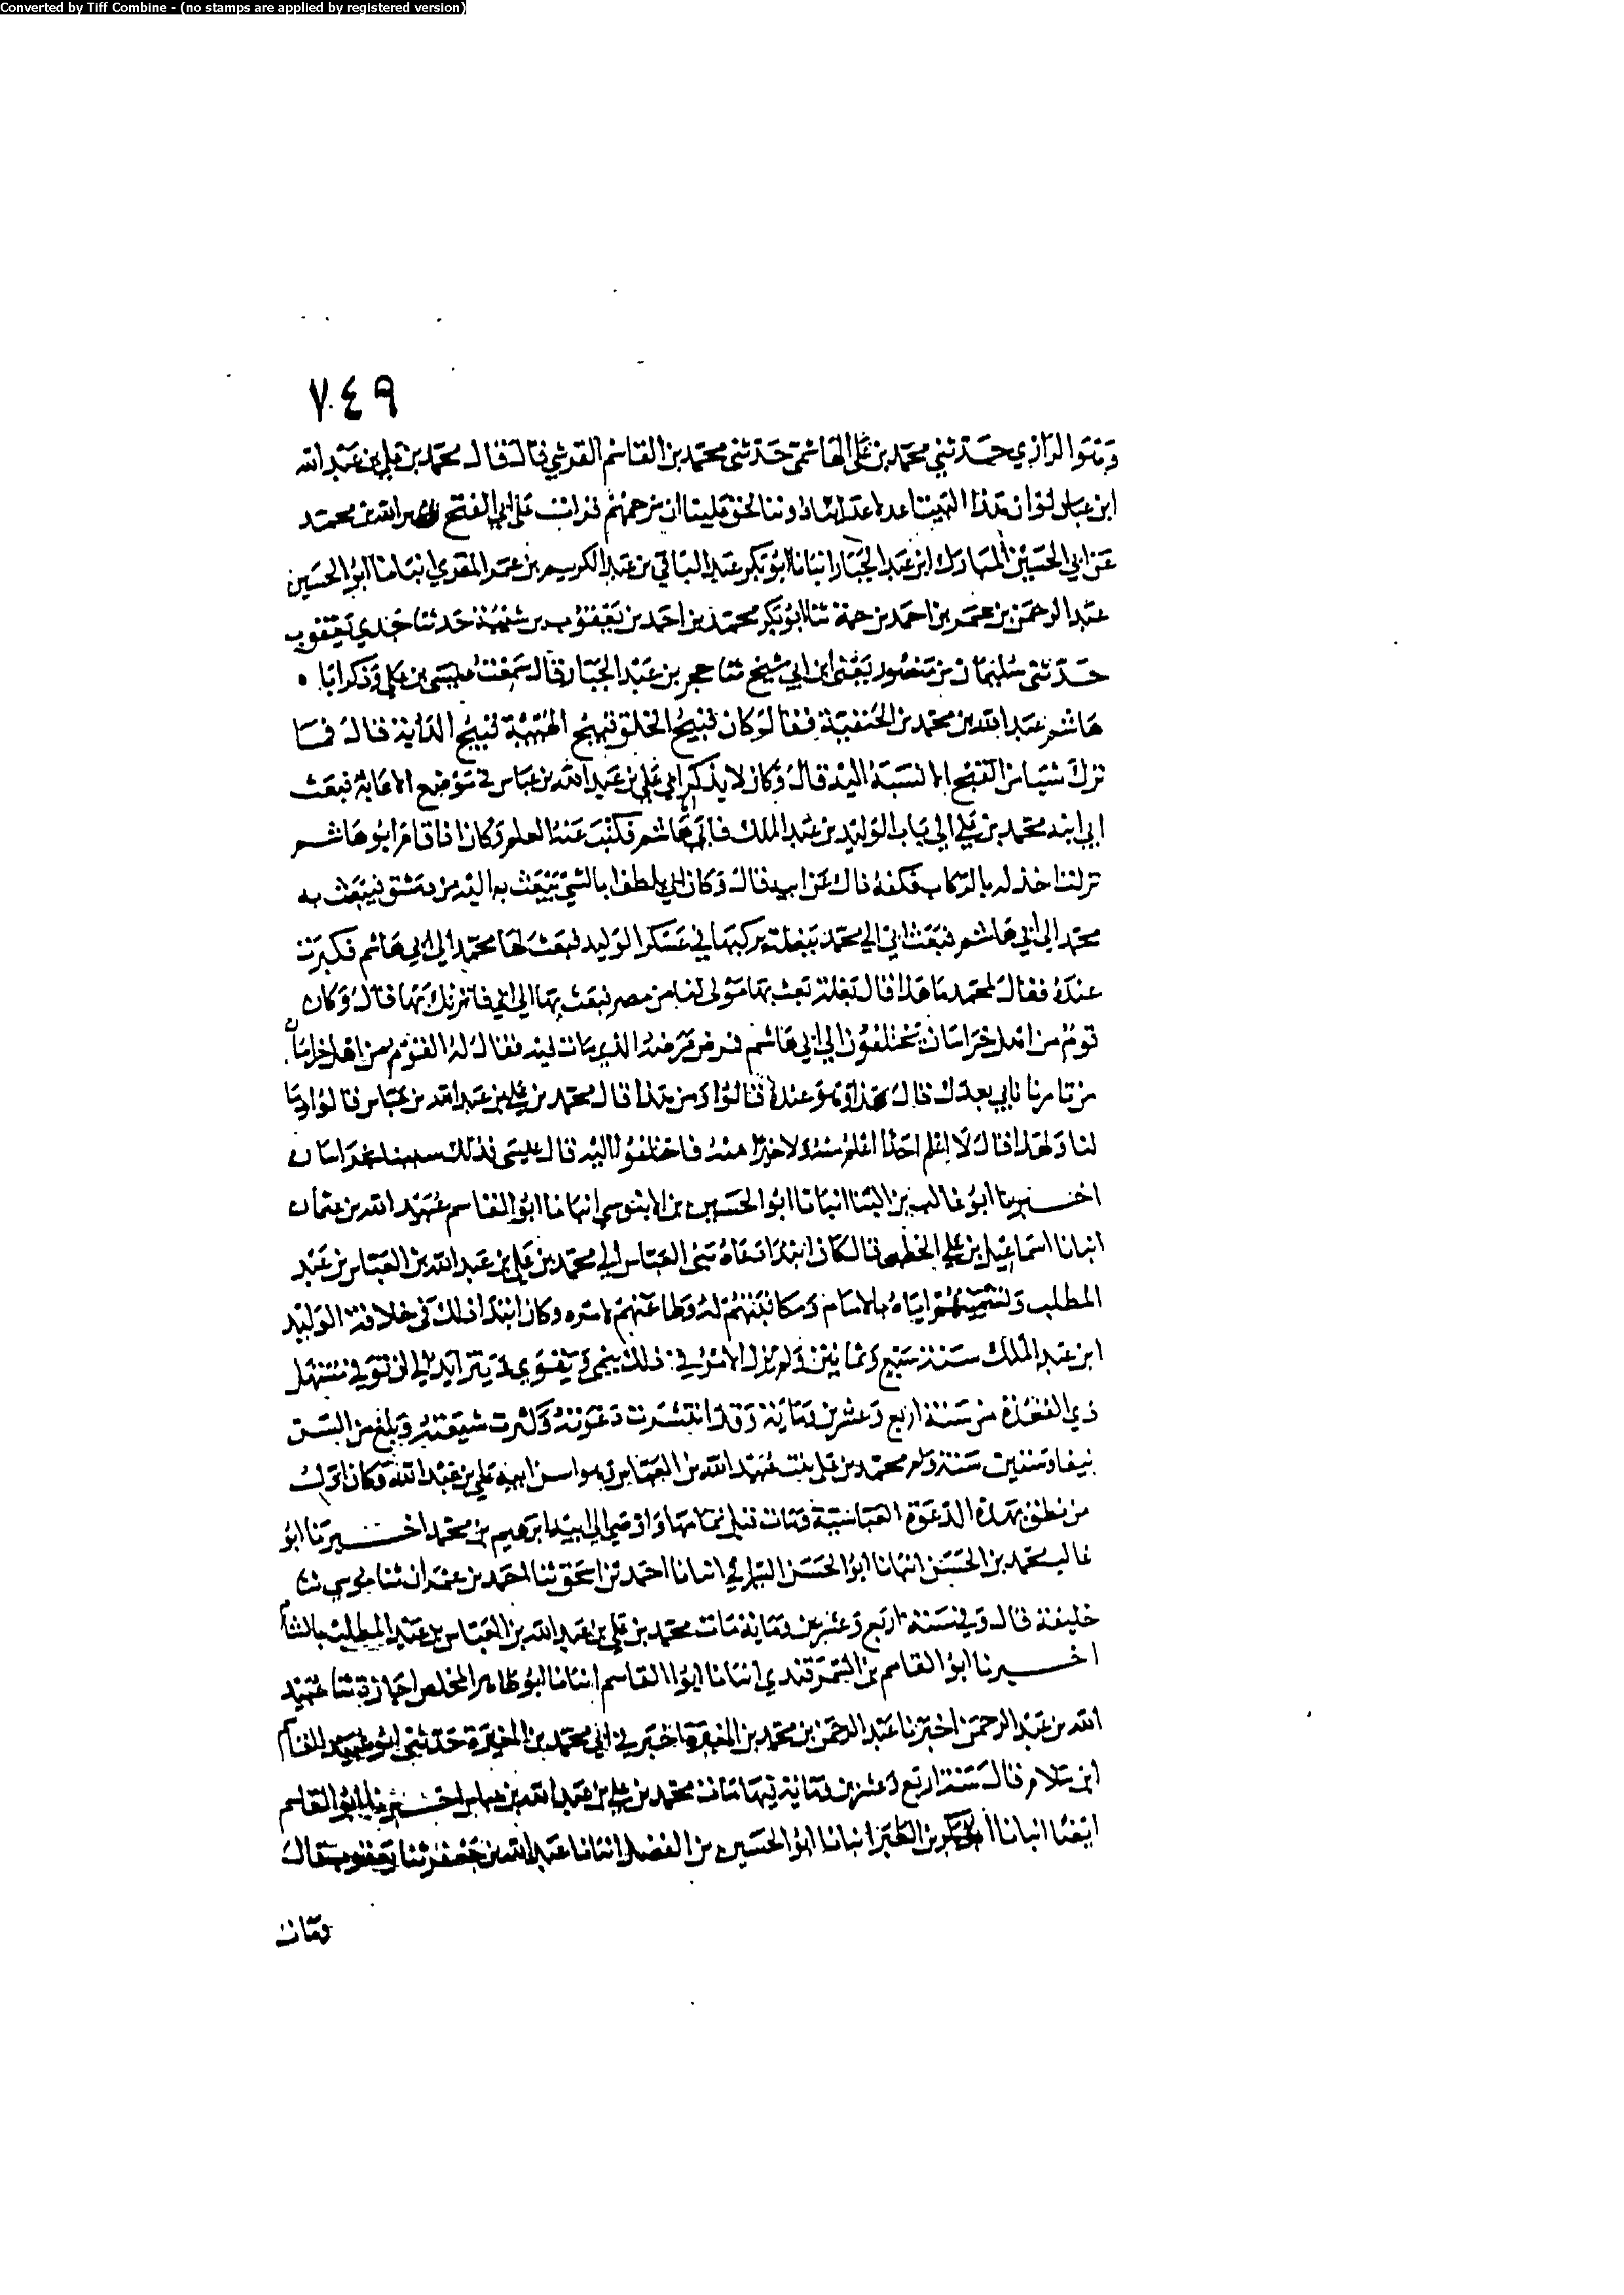 Converted by Tiff Combine - (no stamps are applied by registered version)
٧٤٩
وهو الرازي حدثني محمد بن علي الهاشمي حدثني محمد بن القاسم القرشي قال قال محمد بن علي بن عبد الله
ابن عباس لو ان هذا الهيثا عدا علينا وننا لحق علينا ان نرحمهم قرات على ابي الفتح نصر الله بن محمد
عن ابي الحسين المبارك ابن عبد الجبار انبانا ابو بكر عبد الباقي بن عبد الكريم بن عمر المقري انبانا ابو الحسين
عبد الرحمن بن عمر بن احمد بن حمة ثنا ابو بكر محمد بن احمد بن يعقوب بن شيبة حدثنا جدي يعقوب
حدثني سليمان بن منصور يعني ابن ابي شيخ ثنا حجر بن عبد الجبار قال سمعت عيسى بن علي وذكر ابا
هاشم عبد الله بن محمد بن الحنفية فقال وكان قبيح الخلق قبيح الهيئة قبيح الدابة قال فما
ترك شيا من القبح الا نسبه اليه قال وكان لا يذكر ابي علي بن عبد الله بن عباس في موضع الا عابه فبعث
ابي ابنه محمد بن علي الى باب الوليد بن عبد الملك فاتى ابا هاشم فكتب عنه العلم وكان اذا قام ابو هاشم
نزلنا اخذ له بالركاب فكفه ذاك عن ابيه قال وكان ابي يلطف بالشي يبعث به اليه من دمشق فيبعث به
محمد الى ابي هاشم فبعث ابي الى محمد ببغلة يركبها في عسكر الوليد فبعث بها محمد الى ابي هاشم فكبرت
عنده فقال لمحمد ما هذا قال بغلة بعث بها مولى لنا من مصر فبعث بها الى ابي فاثرتك بها قال وكان
قوم من اهل خراسان يختلفون الى ابي هاشم فمرض مرضه الذي مات فيه فقال له القوم من اهل خراسان
من تامرنا ناتي بعدك قال هذا وهو عنده قالوا ومن هذا قال محمد بن علي بن عبد الله بن عباس قالوا وما
لنا ولهذا قال لا اعلم احدا اعلم منه ولا خيرا منه فاختلفوا اليه قال عيسى فذلك سببنا بخراسان
اخبرنا ابو غالب بن البنا انبانا ابو الحسين بن الابنوسي انبانا ابو القاسم عبيد الله بن عثمان
انبانا اسماعيل بن علي الخطبي قال كان ابتدا دعاة بني العباس الى محمد بن علي بن عبد الله بن العباس بن عبد
المطلب وتسميتهم اياه بالامام ومكاتبتهم له وطاعتهم لامره وكان ابتدا ذلك في خلافة الوليد
ابن عبد الملك سنة سبع وثمانين ولم يزل الامر في ذلك ينمي ويقوى ويتزايد الى ان توفي في مستهل
ذي القعدة من سنة اربع وعشرين ومائة وقد انتشرت دعوته وكثرت شيعته وبلغ من السن
نيفا وستين سنة وام محمد بن علي بنت عبيد الله بن العباس وهو اسن ابيه علي بن عبد الله وكان اول
من نطق بهذه الدعوة العباسية ومات قبل تمامها واوصى الى ابنه ابرهيم بن محمد اخبرنا ابو
غالب محمد بن الحسن انبانا ابو الحسن السيرافي انبانا احمد بن اسحق ثنا احمد بن عمران ثنا موسى ثنا
خليفة قال وفي سنة اربع وعشرين ومائة مات محمد بن علي بن عبد الله بن العباس بن عبد المطلب بالشام
اخبرنا ابو القاسم بن السمرقندي انبانا ابو القاسم انبانا ابو طاهر المخلص اجازة ثنا عبيد
الله بن عبد الرحمن اخبرنا عبد الرحمن بن محمد بن المغيرة اخبرني ابي محمد بن المغيرة حدثني ابو عبيد القاسم
ابن سلام قال سنة اربع وعشرين ومائة فيها مات محمد بن علي بن عبد الله بن عباس اخبرنا ابو القاسم
ايضا انبانا ابو بكر بن الطبر انبانا ابو الحسين بن الفضل انبانا عبد الله بن جعفر ثنا يعقوب قال
ومات